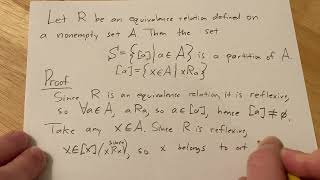 Let R be an equivalence relation defined on
a nonempty set A. Then the set
S = {[a] | a ∈ A} is a partition of A.
[a] = {x ∈ A | x R a}
Proof
Since R is an equivalence relation, it is reflexive,
so ∀a ∈ A, a R a, so a ∈ [a], hence [a] ≠ ∅.
Take any x ∈ A. Since R is reflexive,
x ∈ [x] (since x R x), so x belongs to at